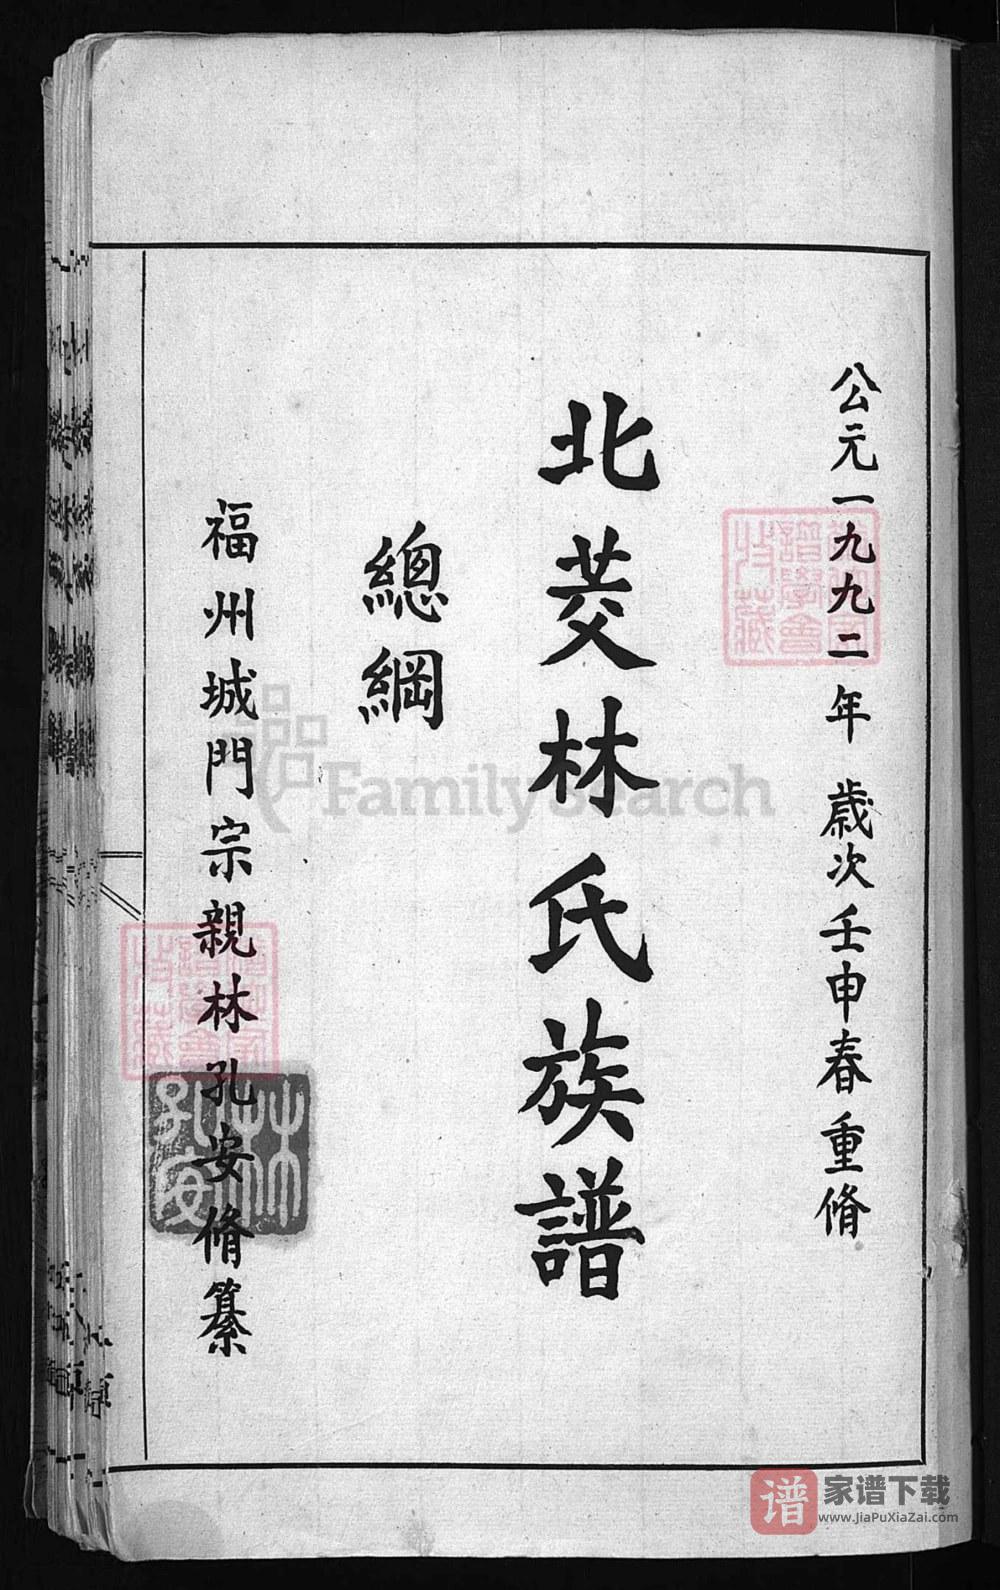 公元一九九二年 歲次壬申春重脩
北茭林氏族譜
總綱
福州城門宗親林孔安脩纂
譜學會
收藏
譜學會
收藏
林
孔安
FamilySearch
谱
家谱下载
www.JiaPuXiaZai.com